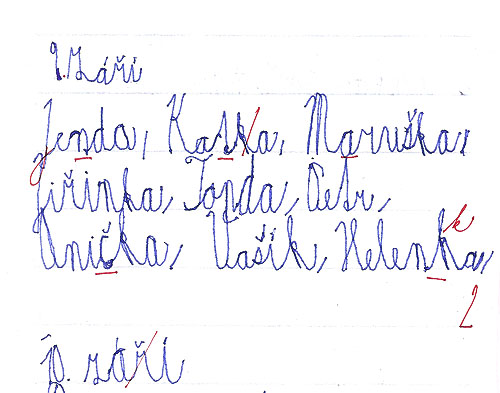 9. září
Jenda, Katka, Maruška,
Jiřinka, Tonda, Petr,
Anička, Vašík, Helenka,
k
2
10. září